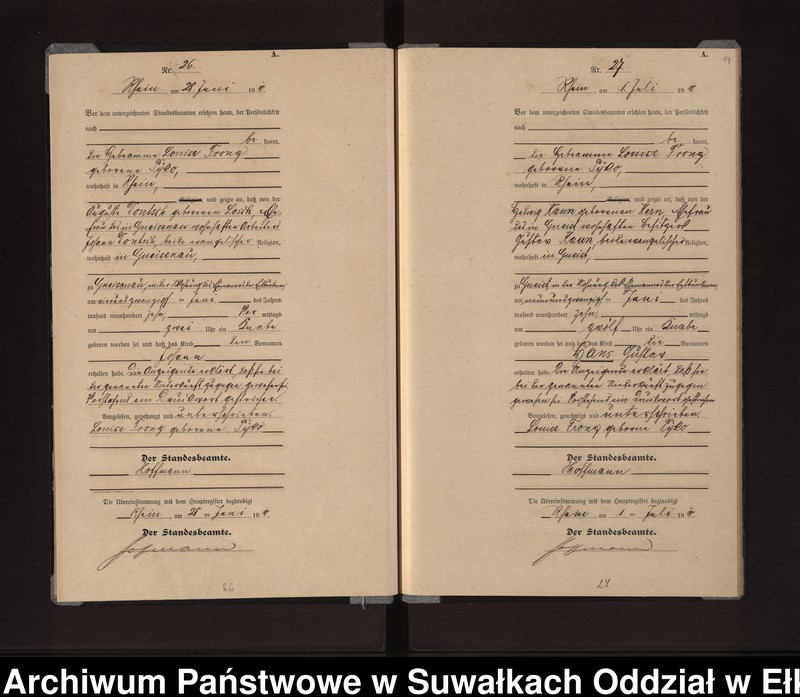 A.
Nr. 26.
Rhein am 28 Juni 19 10.
Vor dem unterzeichneten Standesbeamten erschien heute, der Persönlichkeit
nach
be kannt,
die Hebeamme Louise Trong
geborene Pyko,
wohnhaft in Rhein,
Religion, und zeigte an, daß von der
Auguste Pontzek geborenen Losch, Ehe-
frau des in Gneisenau wohnhaften Arbeiters
Johann Pontzek, beide evangelischer Religion,
wohnhaft in Gneisenau,
zu Gneisenau, in der Wohnung des
am vierundzwanzigsten Juni des Jahres
tausend neunhundert zehn, Vor mittags
um zwei Uhr ein Knabe
geboren worden sei und daß das Kind den Vornamen
Johann
erhalten habe. Die Anzeigende erklärt, daß sie bei
der genannten Niederkunft zugegen gewesen sei.
Vorstehend ein Druckwort gestrichen.
Vorgelesen, genehmigt und unterschrieben.
Louise Trong geborene Pyko
Der Standesbeamte.
Hoffmann
Die Übereinstimmung mit dem Hauptregister beglaubigt
Rhein am 28 ten Juni 19 10.
Der Standesbeamte.
Hoffmann
26
A.
Nr. 27
Rhein am 1. Juli 19 10.
Vor dem unterzeichneten Standesbeamten erschien heute, der Persönlichkeit
nach
be kannt,
die Hebeamme Louise Trong
geborene Pyko,
wohnhaft in Rhein,
Religion, und zeigte an, daß von der
Kann geborenen Kern, Ehefrau
des in Gneist wohnhaften Besitzers
Gustav Kann, beide evangelischer Religion,
wohnhaft in Gneist,
zu Gneist in der Wohnung des
am neunundzwanzigsten Juni des Jahres
tausend neunhundert zehn, mittags
um zwölf Uhr ein Knabe
geboren worden sei und daß das Kind die Vornamen
Hans Gustav
erhalten habe. Die Anzeigende erklärt, daß sie
bei der genannten Niederkunft zugegen
gewesen sei. Vorstehend ein Druckwort gestrichen
Vorgelesen, genehmigt und unterschrieben
Louise Trong geborne Pyko
Der Standesbeamte.
Hoffmann
Die Übereinstimmung mit dem Hauptregister beglaubigt
Rhein am 1 ten Juli 19 10.
Der Standesbeamte.
Hoffmann
27
Archiwum Państwowe w Suwałkach Oddział w Ełk